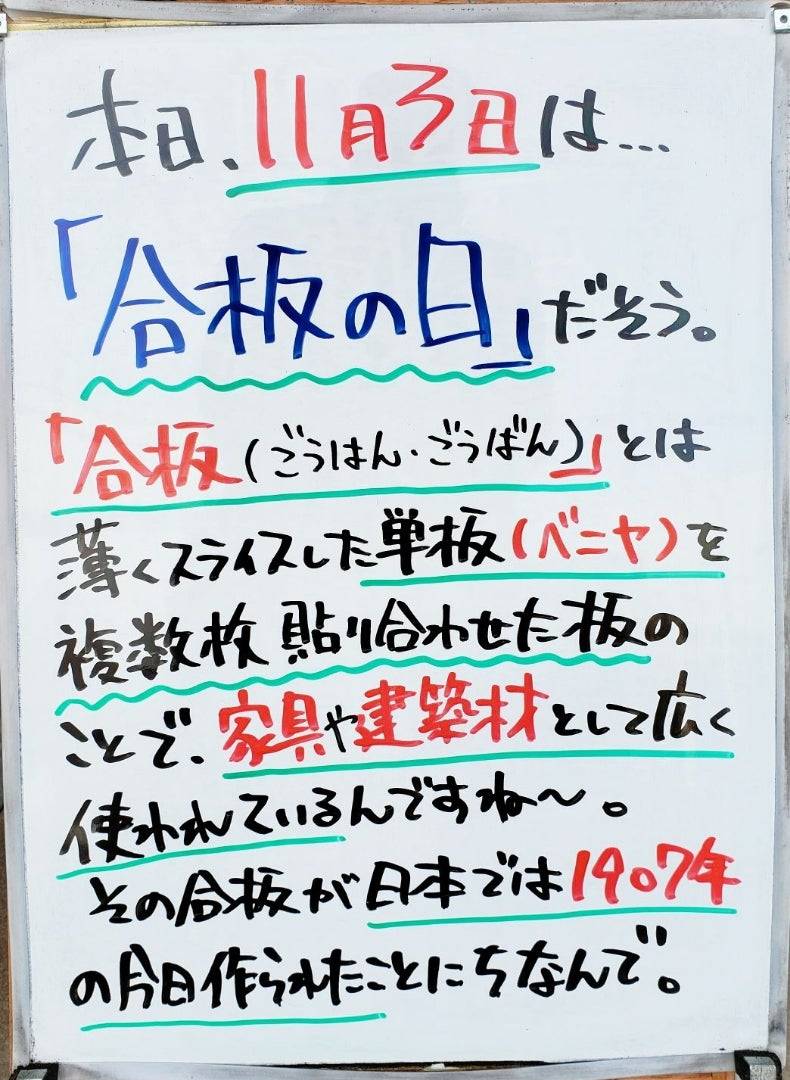 本日、11月3日は...
「合板の日」だそう。
「合板(ごうはん・ごうばん)」とは
薄くスライスした単板(ベニヤ)を
複数枚貼り合わせた板の
ことで、家具や建築材として広く
使われているんですね〜。
その合板が日本では1907年
の今日作られたことにちなんで。